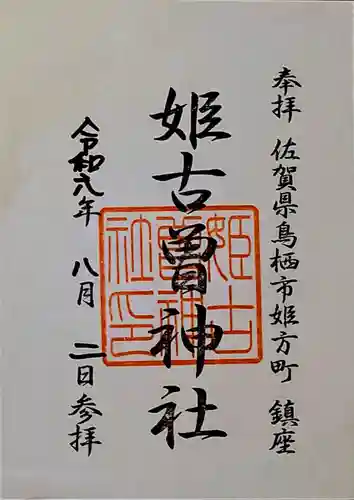 奉拝 佐賀県鳥栖市姫方町 鎮座
姫古曽神社
姫古曽神社印
令和八年 八月 二日参拝